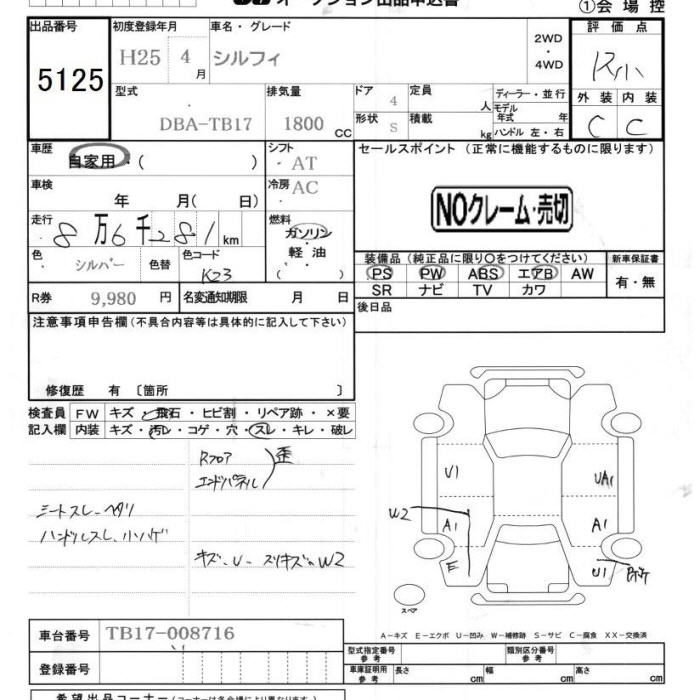 オークション出品申込書
①会場控
出品番号
5125
初度登録年月
H25 4月
車名・グレード
シルフィ
2WD
・
4WD
評価点
R小
型式
DBA-TB17
排気量
1800 CC
ドア
4
形状
S
定員
人
積載
kg
ディーラー・並行
モデル年式 年
ハンドル 左・右
外装 内装
C C
車歴
自家用・( )
シフト
AT
セールスポイント (正常に機能するものに限ります)
NOクレーム・売切
車検
年 月( 日)
冷房 AC
走行
8万6千281km
燃料
ガソリン
軽・油
( )
色
シルバー
色替
色コード
K23
装備品 (純正品に限り○をつけてください)
新車保証書
PS PW ABS エアB AW
SR ナビ TV カワ
有・無
R券 9,980 円
名変通知期限 月 日
後日品
注意事項申告欄(不具合内容等は具体的に記入して下さい)
修復歴 有 〔箇所 〕
検査員
記入欄
FW キズ・飛石・ヒビ割・リペア跡・×要
内装 キズ・汚レ・コゲ・穴・スレ・キレ・破レ
Rフロア
エンドパネル
歪
シートスレ、ヘタリ
ハンドルスレ、小ハゲ
キズ、U
W2
U1
UA1
W2
A1
A1
E
U1
スペア
A-キズ E-エクボ U-凹み W-補修跡 S-サビ C-腐食 XX-交換済
車台番号
TB17-008716
登録番号
型式指定番号
参考
類別区分番号
参考
車庫証明用
参考
長さ cm
幅 cm
高さ cm
希望出品コーナー